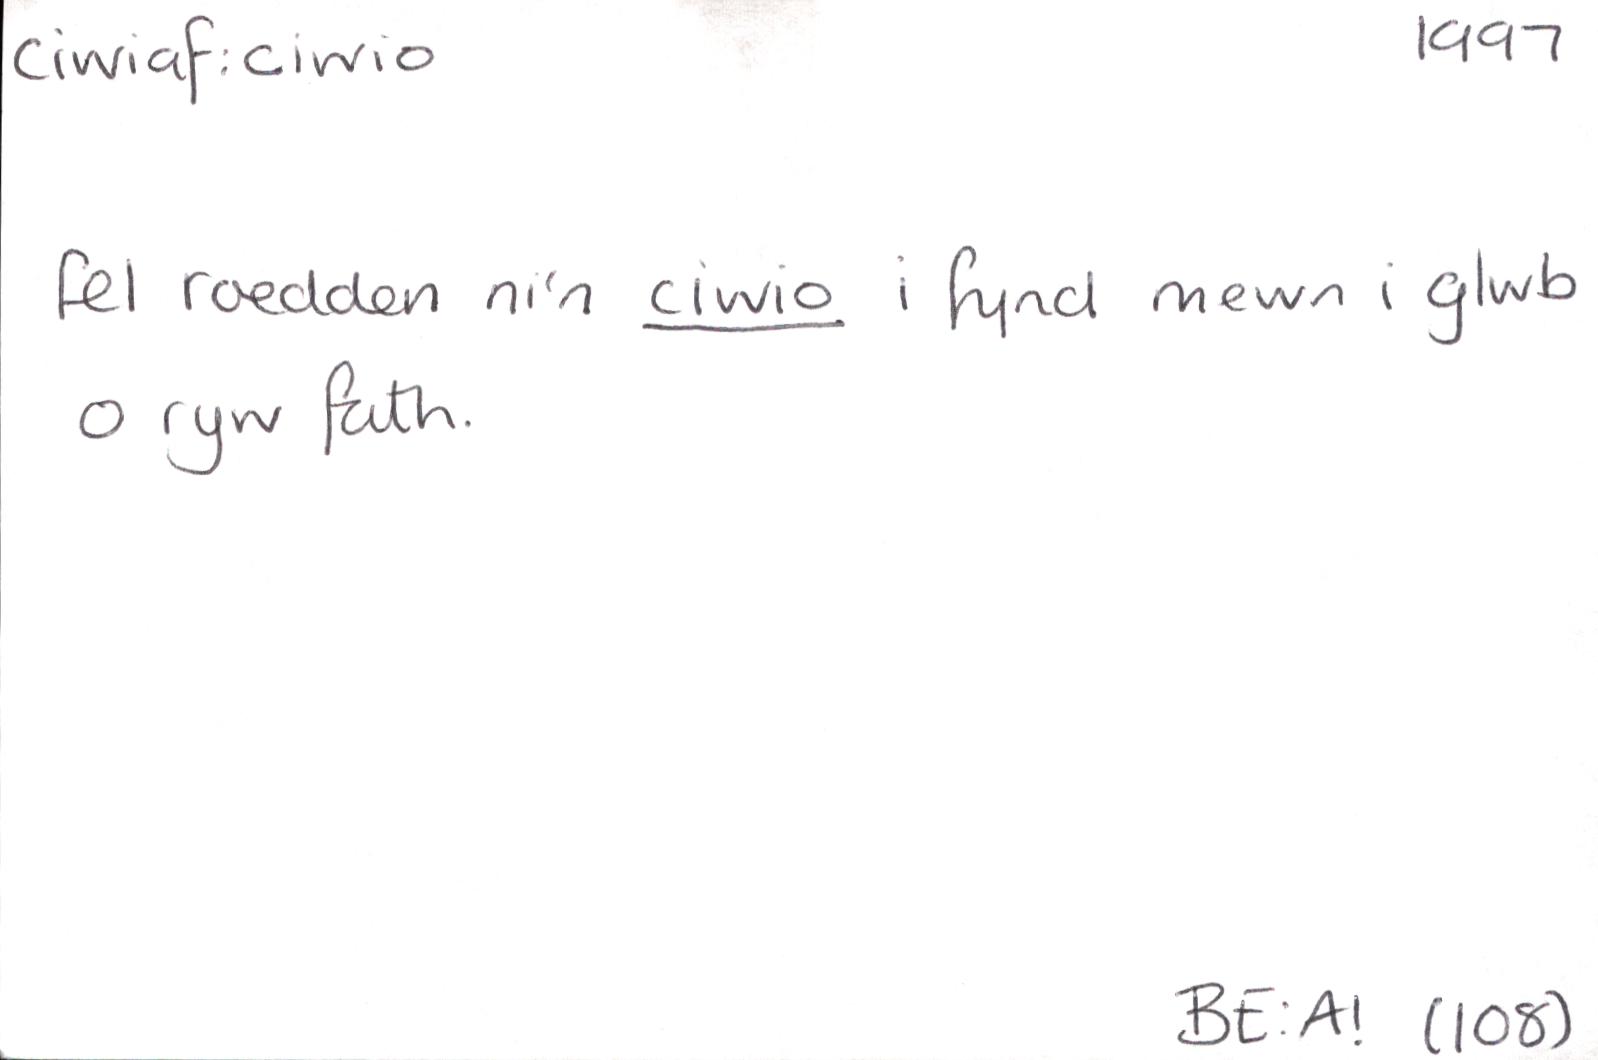 ciwiaf: ciwio 1997
fel roedden ni'n ciwio i fynd mewn i glwb
o ryw fath.
BE: A! (108)